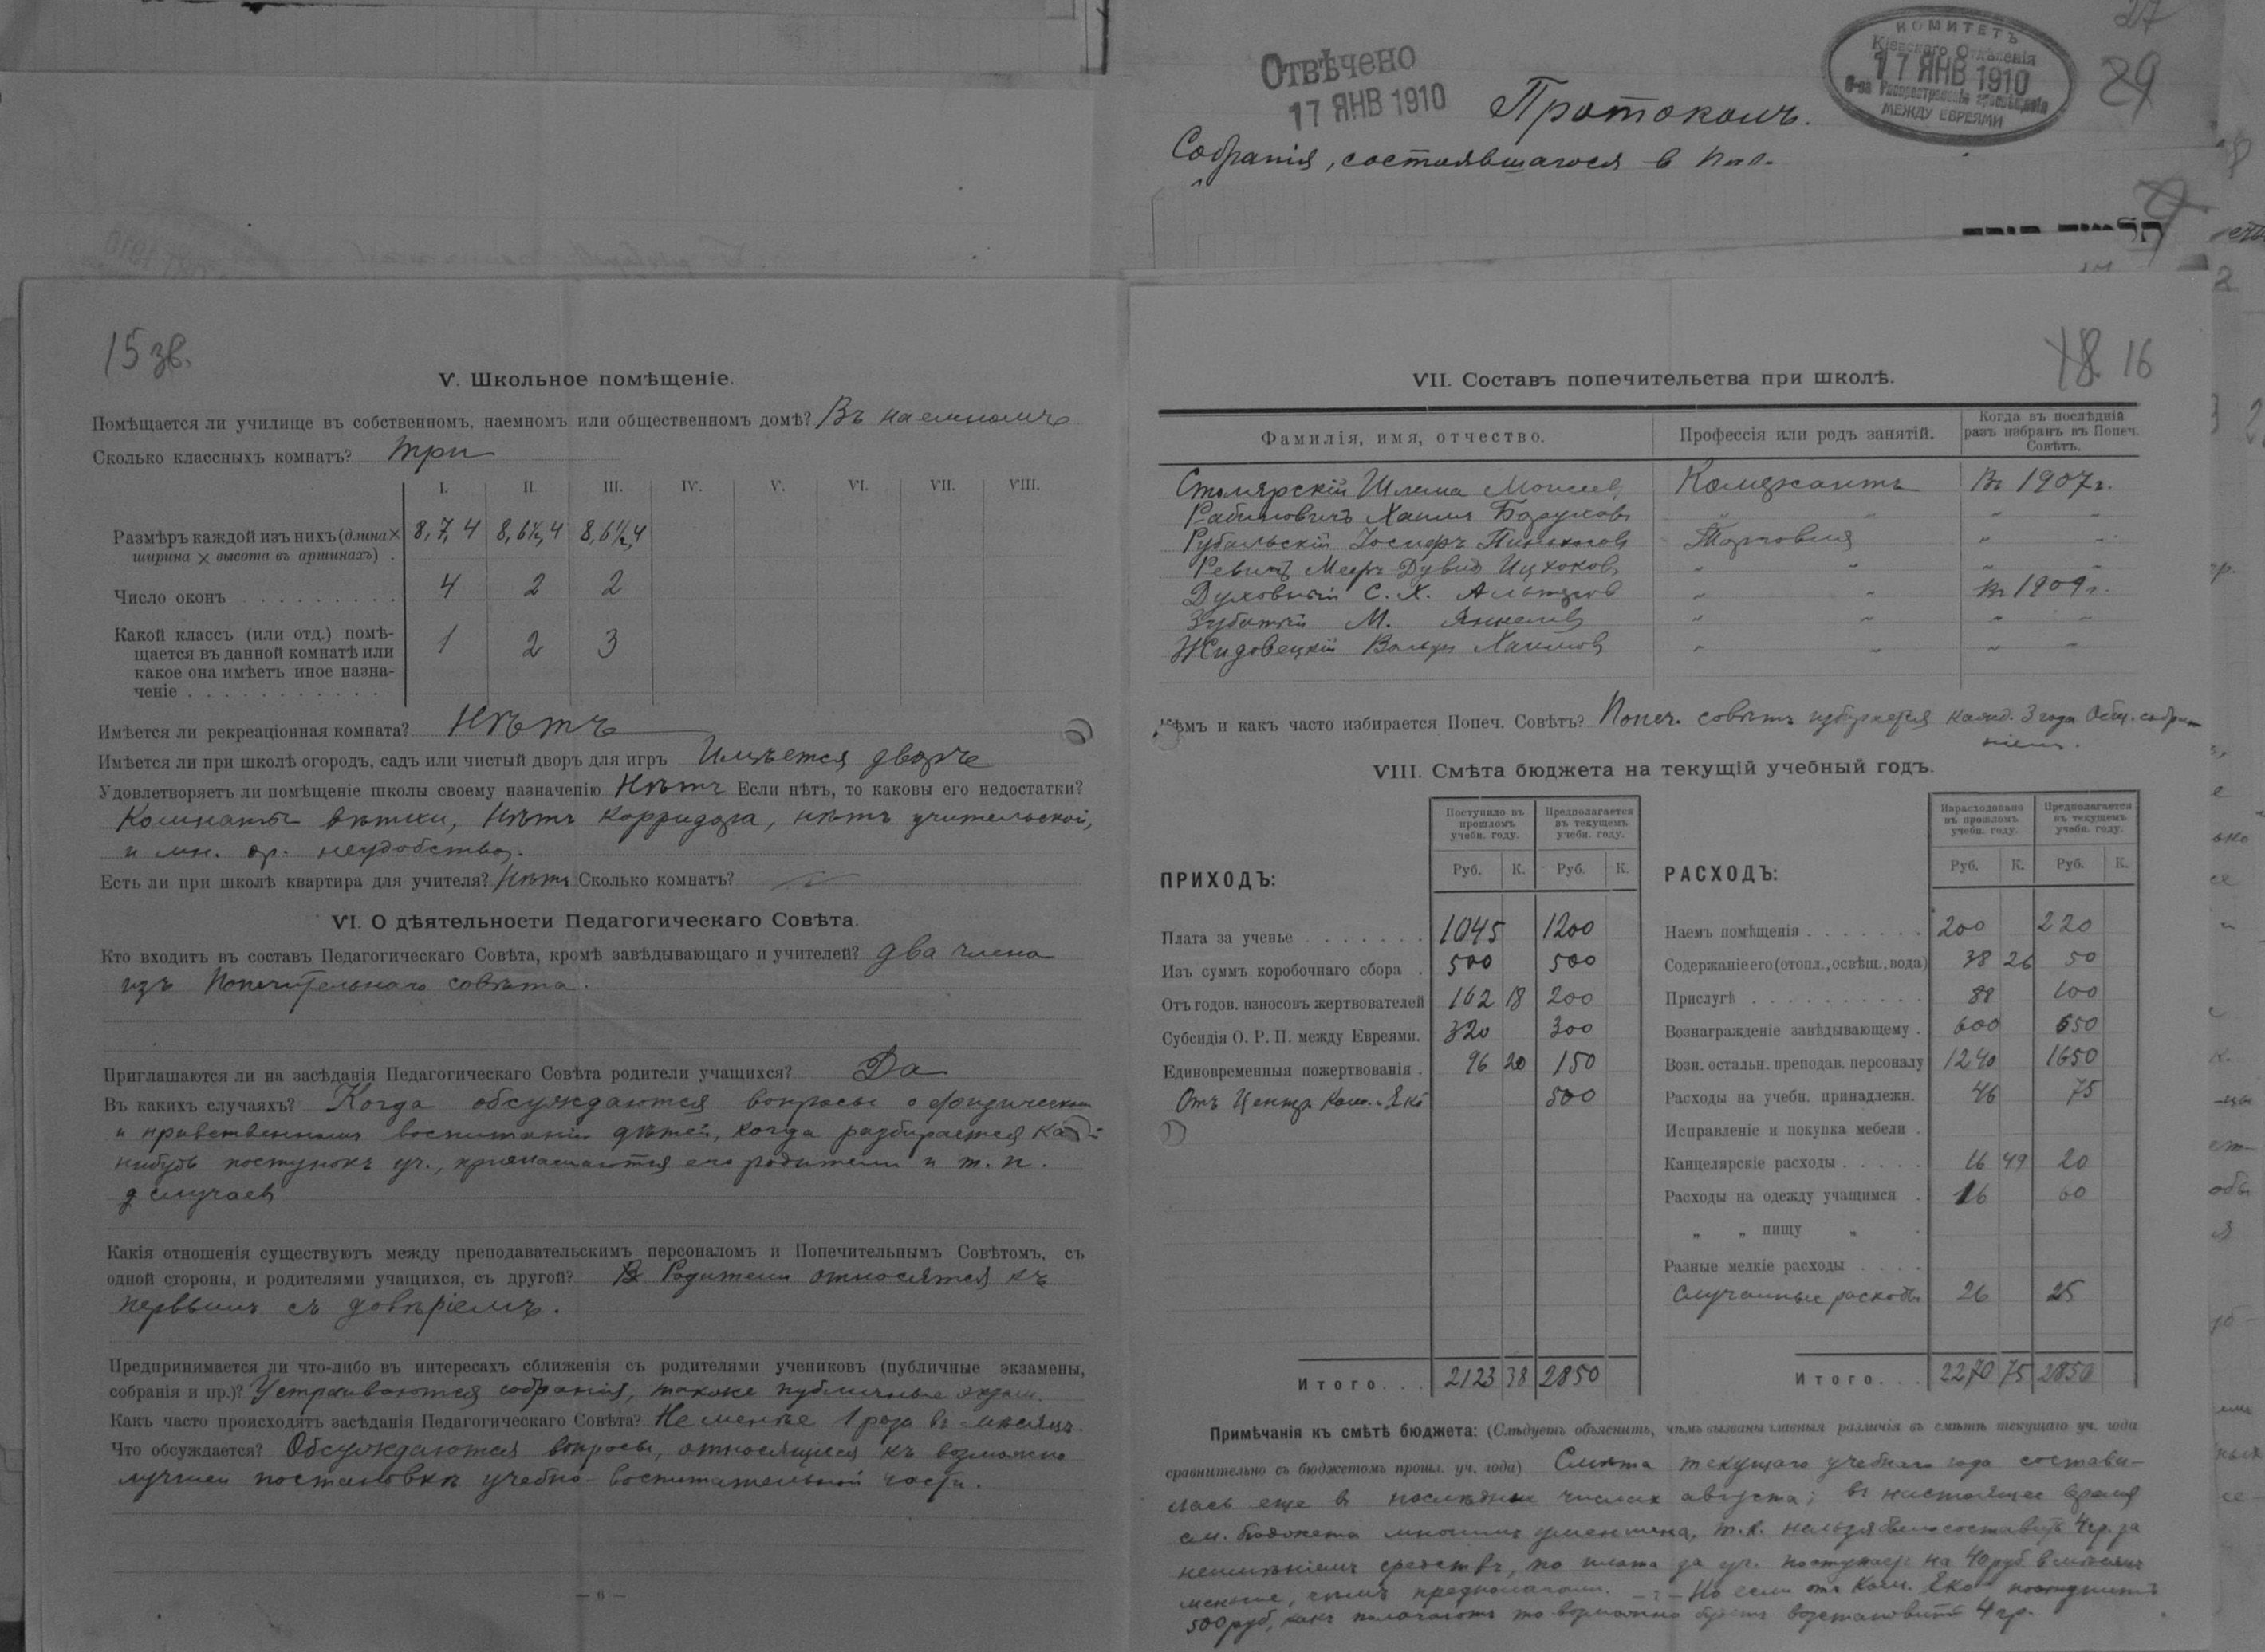 27
29
Отвѣчено
17 ЯНВ 1910
КОМИТЕТЪ
Кіевскаго Отдѣленія
17 ЯНВ 1910
О-ва Распространенія просвѣщенія
МЕЖДУ ЕВРЕЯМИ
Протоколъ.
Собранія, состоявшагося в
15 зв.
V. Школьное помѣщеніе.
Помѣщается ли училище въ собственномъ, наемномъ или общественномъ домѣ? Въ наемномъ
Сколько классныхъ комнатъ? три
I. II. III. IV. V. VI. VII. VIII.
Размѣръ каждой изъ нихъ (длина × 8, 7, 4 8, 6½, 4 8, 6½, 4
ширина × высота въ аршинахъ) .
Число оконъ . . . . . . . . . 4 2 2
Какой классъ (или отд.) помѣ-
щается въ данной комнатѣ или 1 2 3
какое она имѣетъ иное назна-
ченіе . . . . . . . . . . .
Имѣется ли рекреаціонная комната? Нѣтъ
Имѣется ли при школѣ огородъ, садъ или чистый дворъ для игръ Имѣется дворъ
Удовлетворяетъ ли помѣщеніе школы своему назначенію Нѣтъ Если нѣтъ, то каковы его недостатки?
Комнаты вѣтхи, Нѣтъ корридора, нѣтъ учительской,
и мн. др. неудобства.
Есть ли при школѣ квартира для учителя? Нѣтъ Сколько комнатъ?
VI. О дѣятельности Педагогическаго Совѣта.
Кто входитъ въ составъ Педагогическаго Совѣта, кромѣ завѣдывающаго и учителей? два члена
изъ Попечительнаго совѣта.
Приглашаются ли на засѣданія Педагогическаго Совѣта родители учащихся? Да
Въ какихъ случаяхъ? Когда обсуждаются вопросы о физическом
и нравственномъ воспитаніи дѣтей, когда разбирается
нибудь поступокъ уч., приглашаются его родители и т. п.
случаев
Какія отношенія существуютъ между преподавательскимъ персоналомъ и Попечительнымъ Совѣтомъ, съ
одной стороны, и родителями учащихся, съ другой? Родители относятся къ
первымъ съ довѣріемъ.
Предпринимается ли что-либо въ интересахъ сближенія съ родителями учениковъ (публичные экзамены,
собранія и пр.)? Устраиваются собранія, также публичные экзам.
Какъ часто происходятъ засѣданія Педагогическаго Совѣта? Не менѣе 1 раза въ мѣсяцъ.
Что обсуждается? Обсуждаются вопросы, относящіеся къ возможно
лучшей постановкѣ учебно-воспитательной части.
— 6 —
18. 16
VII. Составъ попечительства при школѣ.
Фамилія, имя, отчество. Профессія или родъ занятій. Когда въ послѣдній
разъ избранъ въ Попеч.
Совѣтъ.
Столярскій Шлема Моисеев. Въ 1907 г.
Рабинович Хаим Борухов " " " "
Рубальскій Іосифъ Пинхасов Торговля " "
Ревич Меер Дувид Ицхоков " " " "
Духовный С. Х. " " Въ 1909 г.
Зубатый М. Янкелев " " " "
Жидовецкій Вольф Хаимов " " " "
Кѣмъ и какъ часто избирается Попеч. Совѣтъ? Попеч. совѣтъ избирается кажд. 3 года Общ. собра
ніем.
VIII. Смѣта бюджета на текущій учебный годъ.
ПРИХОДЪ: Поступило въ прошломъ учебн. году. Предполагается въ текущемъ учебн. году.
Руб. К. Руб. К.
Плата за ученье . . . . . . . 1045 1200
Изъ суммъ коробочнаго сбора . 500 500
Отъ годов. взносовъ жертвователей 162 18 200
Субсидія О. Р. П. между Евреями. 320 300
Единовременныя пожертвованія . 96 20 150
Отъ Центр. Ком. Еко 500
Итого. . . 2123 38 2850
РАСХОДЪ: Израсходовано въ прошломъ учебн. году. Предполагается въ текущемъ учебн. году.
Руб. К. Руб. К.
Наемъ помѣщенія . . . . . . . 200 220
Содержаніе его (отопл., освѣщ., вода) 38 26 50
Прислугѣ . . . . . . . . . . 88 100
Вознагражденіе завѣдывающему . 600 650
Возн. остальн. преподав. персоналу 1240 1650
Расходы на учебн. принадлежн. 46 75
Исправленіе и покупка мебели .
Канцелярскіе расходы . . . . . 16 49 20
Расходы на одежду учащимся . 16 60
„ „ пищу „ .
Разные мелкіе расходы . . . .
Случайные расходы 26 25
Итого. . . 2270 75 2850
Примѣчанія къ смѣтѣ бюджета: (Слѣдуетъ объяснить, чѣмъ вызваны главныя различія въ смѣтѣ текущаго уч. года
сравнительно съ бюджетомъ прошл. уч. года) Смѣта текущаго учебнаго года состави-
лась еще в послѣдних числах августа; в настоящее время
см. бюджета многимъ уменшена, т. к. нельзя было составить 4 гр. за
неимѣніемъ средствъ, но плата за уч. поступает на 40 руб. в мѣсяцъ
меньше, чѣмъ предполагали. Но если отъ Ком. Еко поступитъ
500 руб, какъ полагаютъ то возможно будетъ возстановить 4 гр.